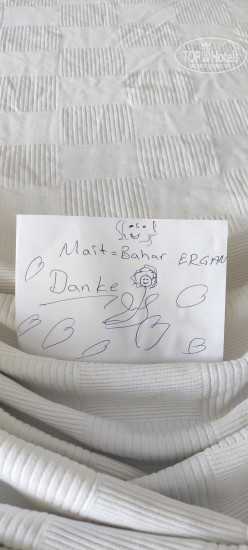 TOP Hotels
Mait = Bahar ERGAN
Danke